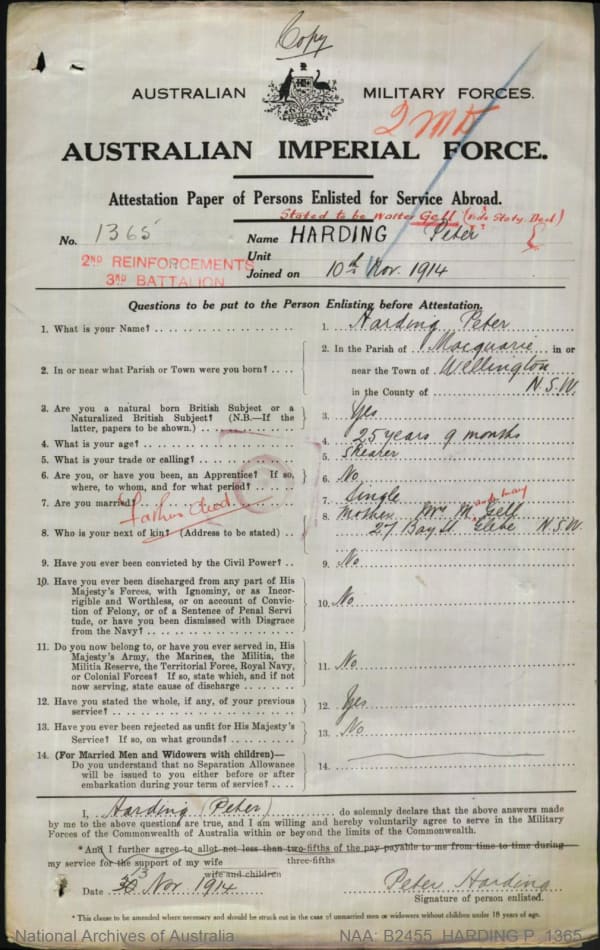 Copy
AUSTRALIAN MILITARY FORCES.
AUSTRALIAN IMPERIAL FORCE.
Attestation Paper of Persons Enlisted for Service Abroad.
Stated to be Walter Gell (vide Staty Decl)
No. 1365 Name HARDING Peter
Unit
2ND REINFORCEMENTS
3RD BATTALION
Joined on 10th Nov. 1914
Questions to be put to the Person Enlisting before Attestation.
1. What is your Name? 1. Harding Peter
2. In or near what Parish or Town were you born? 2. In the Parish of Macquarie in or
near the Town of Wellington
in the County of N.S.W.
3. Are you a natural born British Subject or a
Naturalized British Subject? (N.B.—If the
latter, papers to be shown.) 3. Yes
4. What is your age? 4. 25 years 9 months
5. What is your trade or calling? 5. Shearer
6. Are you, or have you been, an Apprentice? If so,
where, to whom, and for what period? 6. No
7. Are you married? 7. Single
Father Decd
8. Who is your next of kin? (Address to be stated) 8. Mother Mrs M. Gell
27 Bay St. Glebe N.S.W
9. Have you ever been convicted by the Civil Power? 9. No
10. Have you ever been discharged from any part of His
Majesty's Forces, with Ignominy, or as Incor-
rigible and Worthless, or on account of Convic-
tion of Felony, or of a Sentence of Penal Servi
tude, or have you been Dismissed with Disgrace
from the Navy? 10. No
11. Do you now belong to, or have you ever served in, His
Majesty's Army, the Marines, the Militia, the
Militia Reserve, the Territorial Force, Royal Navy,
or Colonial Forces? If so, state which, and if not
now serving, state cause of discharge 11. No
12. Have you stated the whole, if any, of your previous
service? 12. Yes
13. Have you ever been rejected as unfit for His Majesty's
Service? If so, on what grounds? 13. No
14. (For Married Men and Widowers with children)—
Do you understand that no Separation Allowance
will be issued to you either before or after
embarkation during your term of service? 14.
I, Harding (Peter) do solemnly declare that the above answers made
by me to the above questions are true, and I am willing and hereby voluntarily agree to serve in the Military
Forces of the Commonwealth of Australia within or beyond the limits of the Commonwealth.
*And I further agree to allot not less than two-fifths of the pay payable to me from time to time during
three-fifths
my service for the support of my wife
wife and children
Date 13 Nov. 1914 Peter Harding
Signature of person enlisted.
* This clause to be amended where necessary and should be struck out in the case of unmarried men or widowers without children under 18 years of age.
National Archives of Australia NAA: B2455, HARDING P 1365